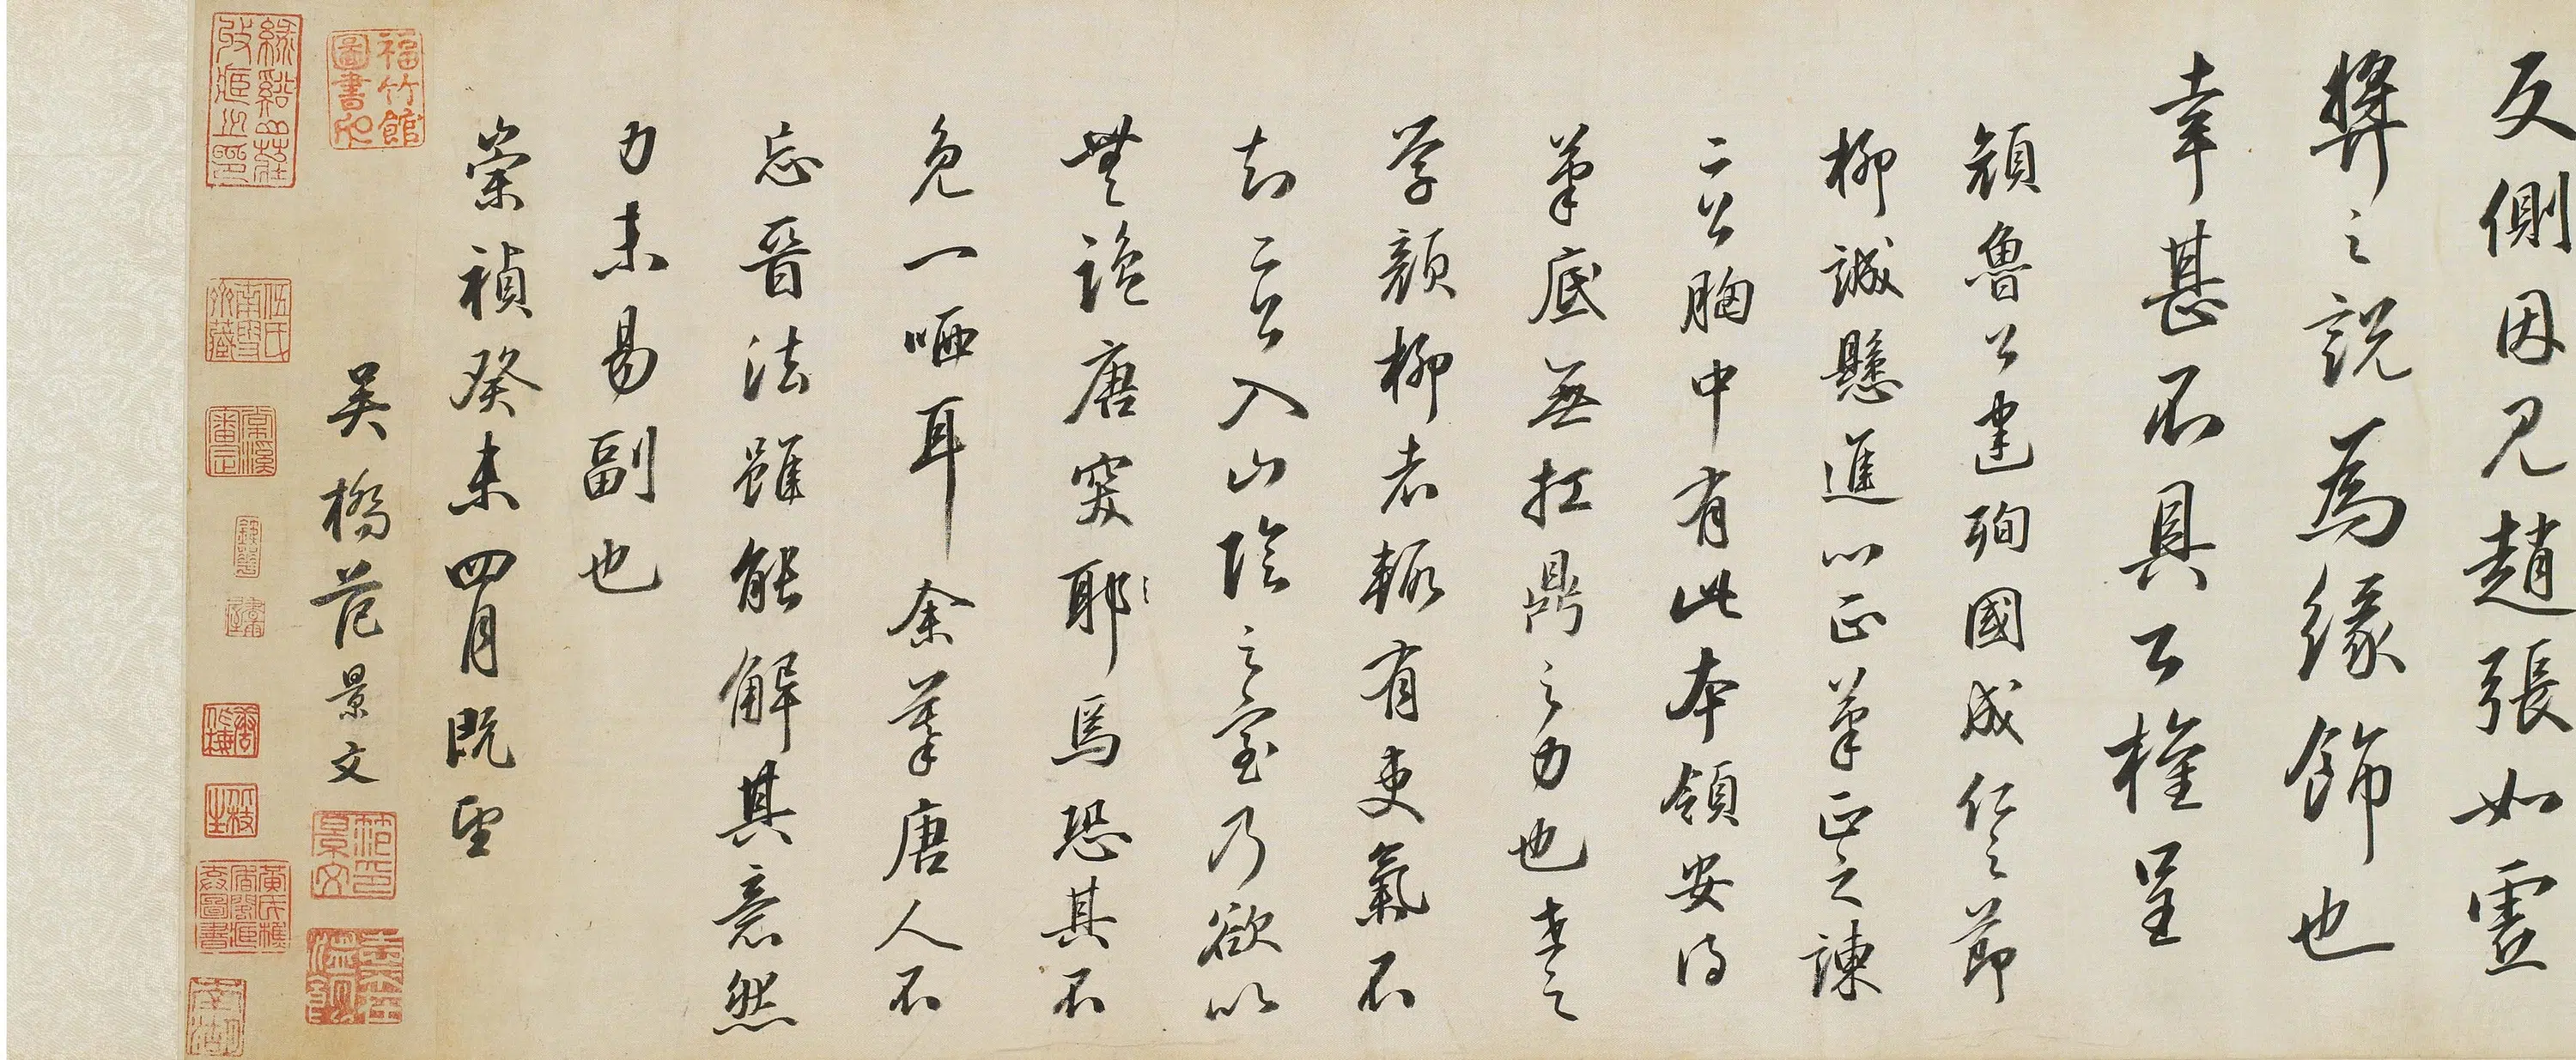 反側因見趙張如靈
弊之說爲緣飾也
幸甚不具公權呈
顏魯公建殉國成仁之節
柳誠懸進心正筆正之諫
二公胸中有此本領安得
筆底無扛鼎之力也世之
學顏柳者輒有吏氣不
知二公入山陰之室乃欲以
無鹽唐突耶焉恐其不
免一哂耳 余摹唐人不
忘晉法雖能解其意然
力未易副也
崇禎癸未四月既望
吳橋范景文
福竹館
圖書印
范印
景文